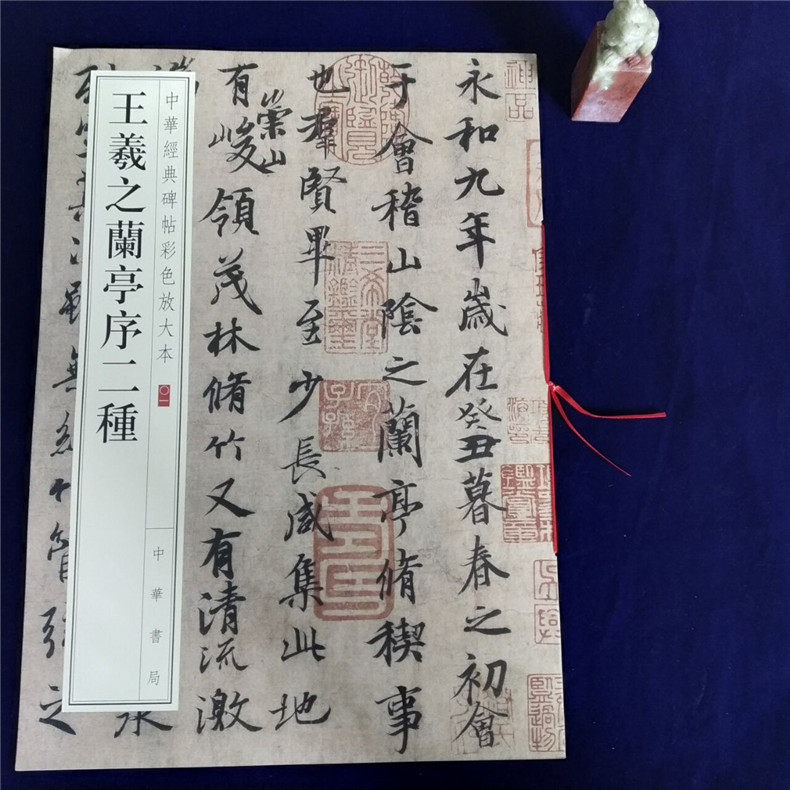 神品
永和九年歲在癸丑暮春之初會
于會稽山陰之蘭亭脩稧事
也羣賢畢至少長咸集此地
有崇山峻領茂林脩竹又有清流激
湍
水
中華經典碑帖彩色放大本
〇一
中華書局
王羲之蘭亭序二種
列坐其次雖無絲竹管弦之